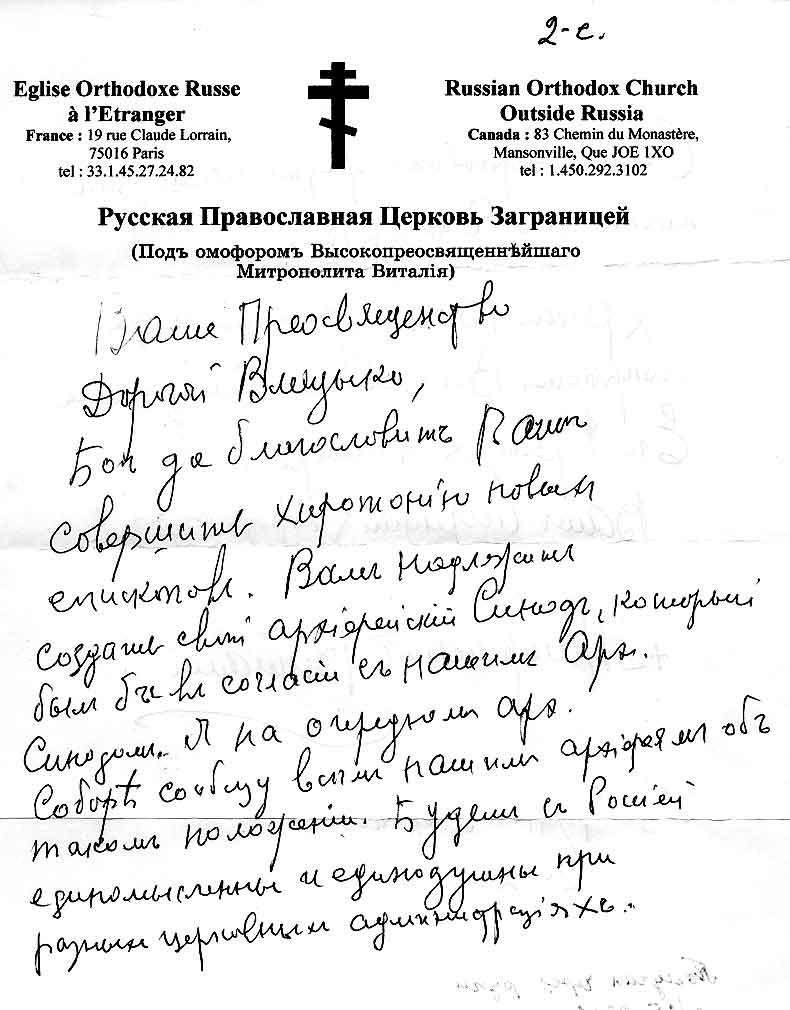 2-е.
Eglise Orthodoxe Russe
à l'Etranger
France : 19 rue Claude Lorrain,
75016 Paris
tel : 33.1.45.27.24.82
Russian Orthodox Church
Outside Russia
Canada : 83 Chemin du Monastère,
Mansonville, Que JOE 1XO
tel : 1.450.292.3102
Русская Православная Церковь Заграницей
(Подъ омофоромъ Высокопреосвященнѣйшаго
Митрополита Виталія)
Ваше Преосвященство
Дорогой Владыко,
Бог да благословитъ Вамъ
совершить хиротонію новыхъ
епископовъ. Вамъ надлежитъ
создать свой архіерейскій Синодъ, который
былъ бъ въ согласіи съ нашимъ Арх.
Синодомъ. Я на очередномъ арх.
Соборѣ сообщу всѣмъ нашимъ архіереямъ объ
такомъ положеніи. Будемъ съ Россіей
единомысленны и единодушны при
разныхъ церковныхъ администраціяхъ.